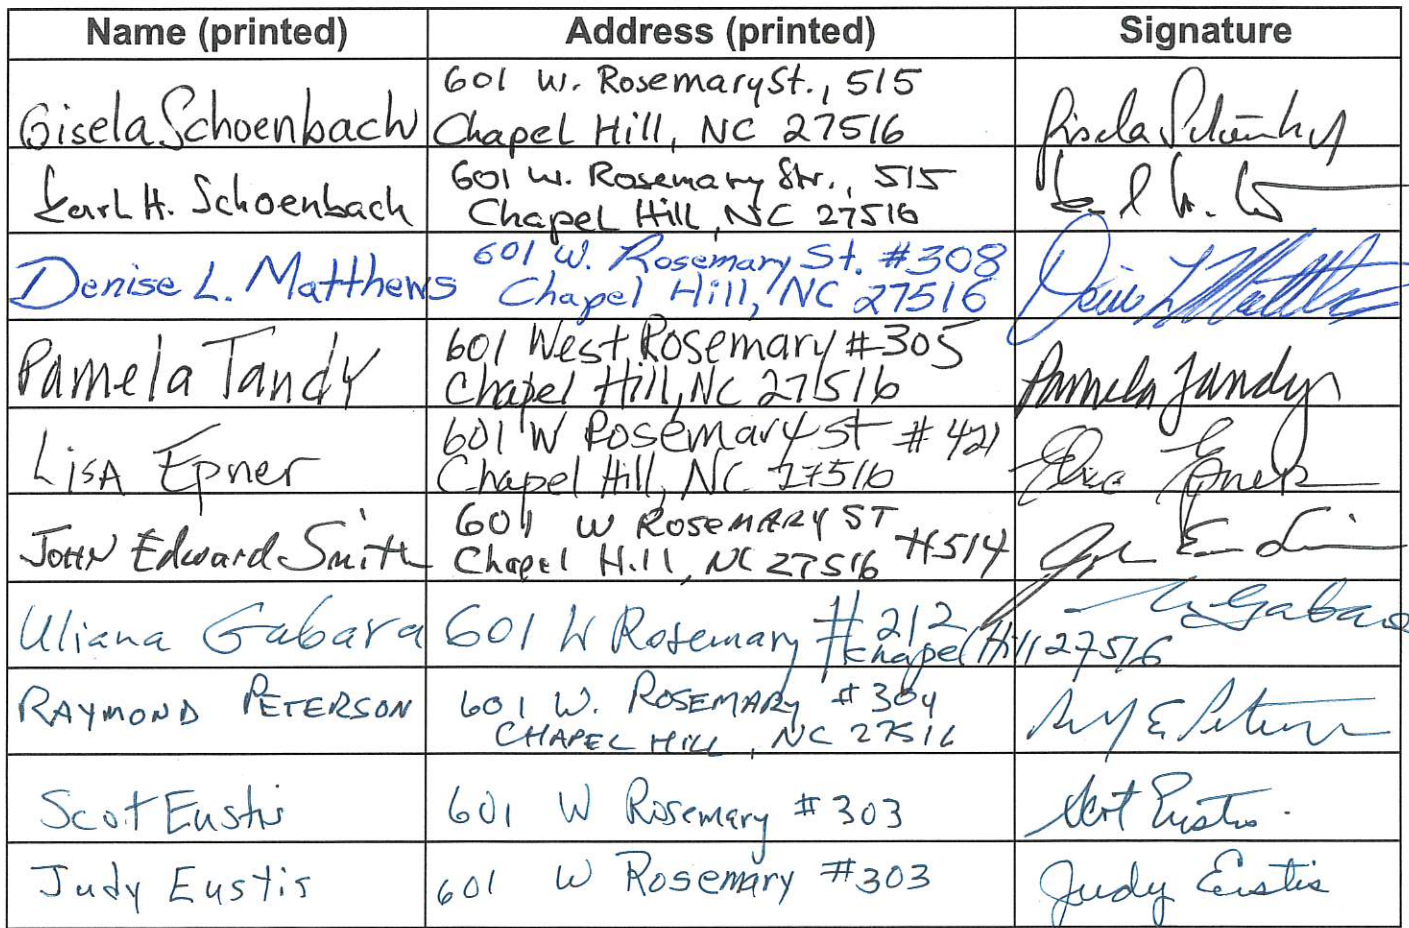 Name (printed) Address (printed) Signature
Gisela Schoenbach 601 W. Rosemary St., 515
Chapel Hill, NC 27516
Karl H. Schoenbach 601 W. Rosemary Str., 515
Chapel Hill, NC 27516
Denise L. Matthews 601 W. Rosemary St. #308
Chapel Hill, NC 27516
Pamela Tandy 601 West Rosemary #305 Pamela Tandy
Chapel Hill, NC 27516
Lisa Epner 601 W Rosemary St #421
Chapel Hill, NC 27516
John Edward Smith 601 W Rosemary ST #514
Chapel Hill, NC 27516
Uliana Gabara 601 W Rosemary #212 Gabara
Chapel Hill 27516
RAYMOND PETERSON 601 W. ROSEMARY #304
CHAPEL HILL, NC 27516
Scot Eustis 601 W Rosemary #303 Scot Eustis
Judy Eustis 601 W Rosemary #303 Judy Eustis